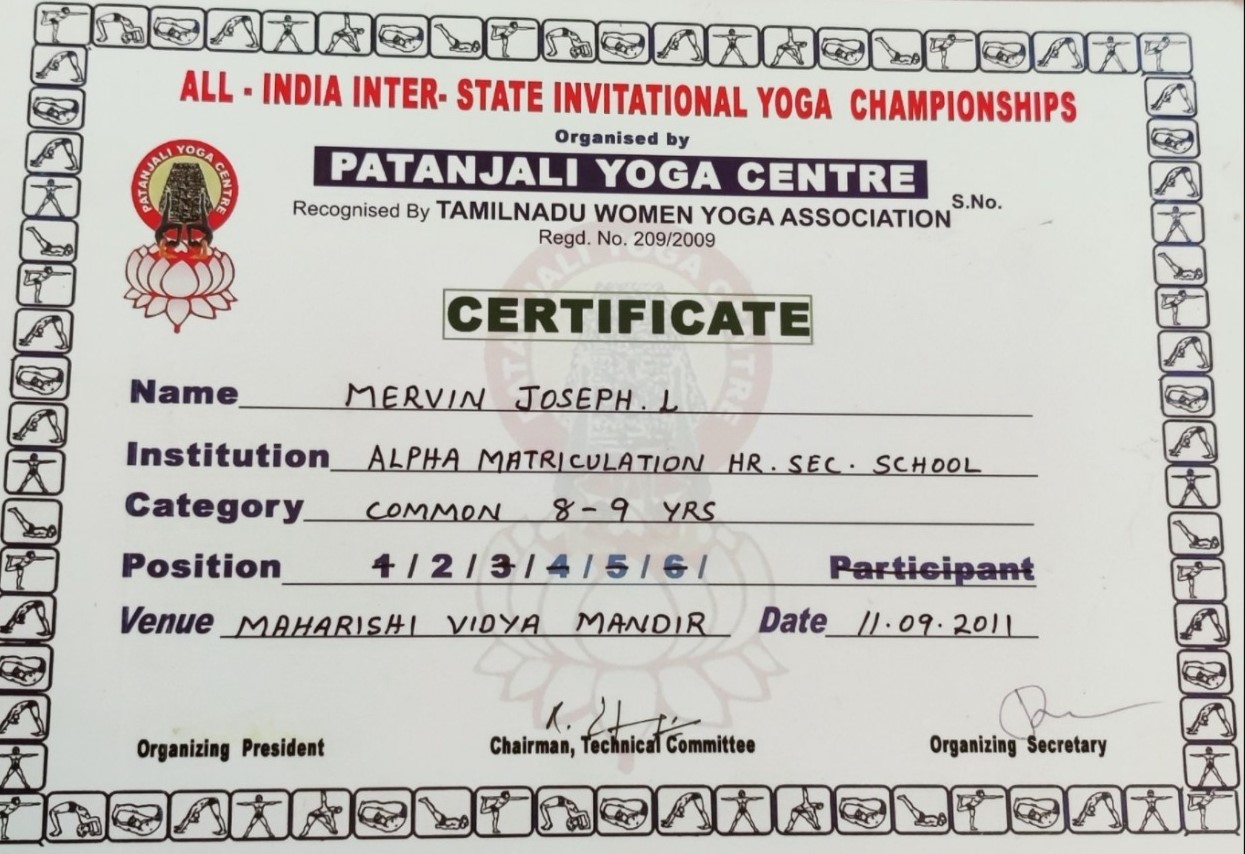 ALL - INDIA INTER- STATE INVITATIONAL YOGA CHAMPIONSHIPS
Organised by
PATANJALI YOGA CENTRE
PATANJALI YOGA CENTRE
Recognised By TAMILNADU WOMEN YOGA ASSOCIATION S.No.
Regd. No. 209/2009
CERTIFICATE
Name MERVIN JOSEPH. L
Institution ALPHA MATRICULATION HR. SEC. SCHOOL
Category COMMON 8-9 YRS
Position 1 / 2 / 3 / 4 / 5 / 6 / Participant
Venue MAHARISHI VIDYA MANDIR Date 11.09.2011
Organizing President Chairman, Technical Committee Organizing Secretary